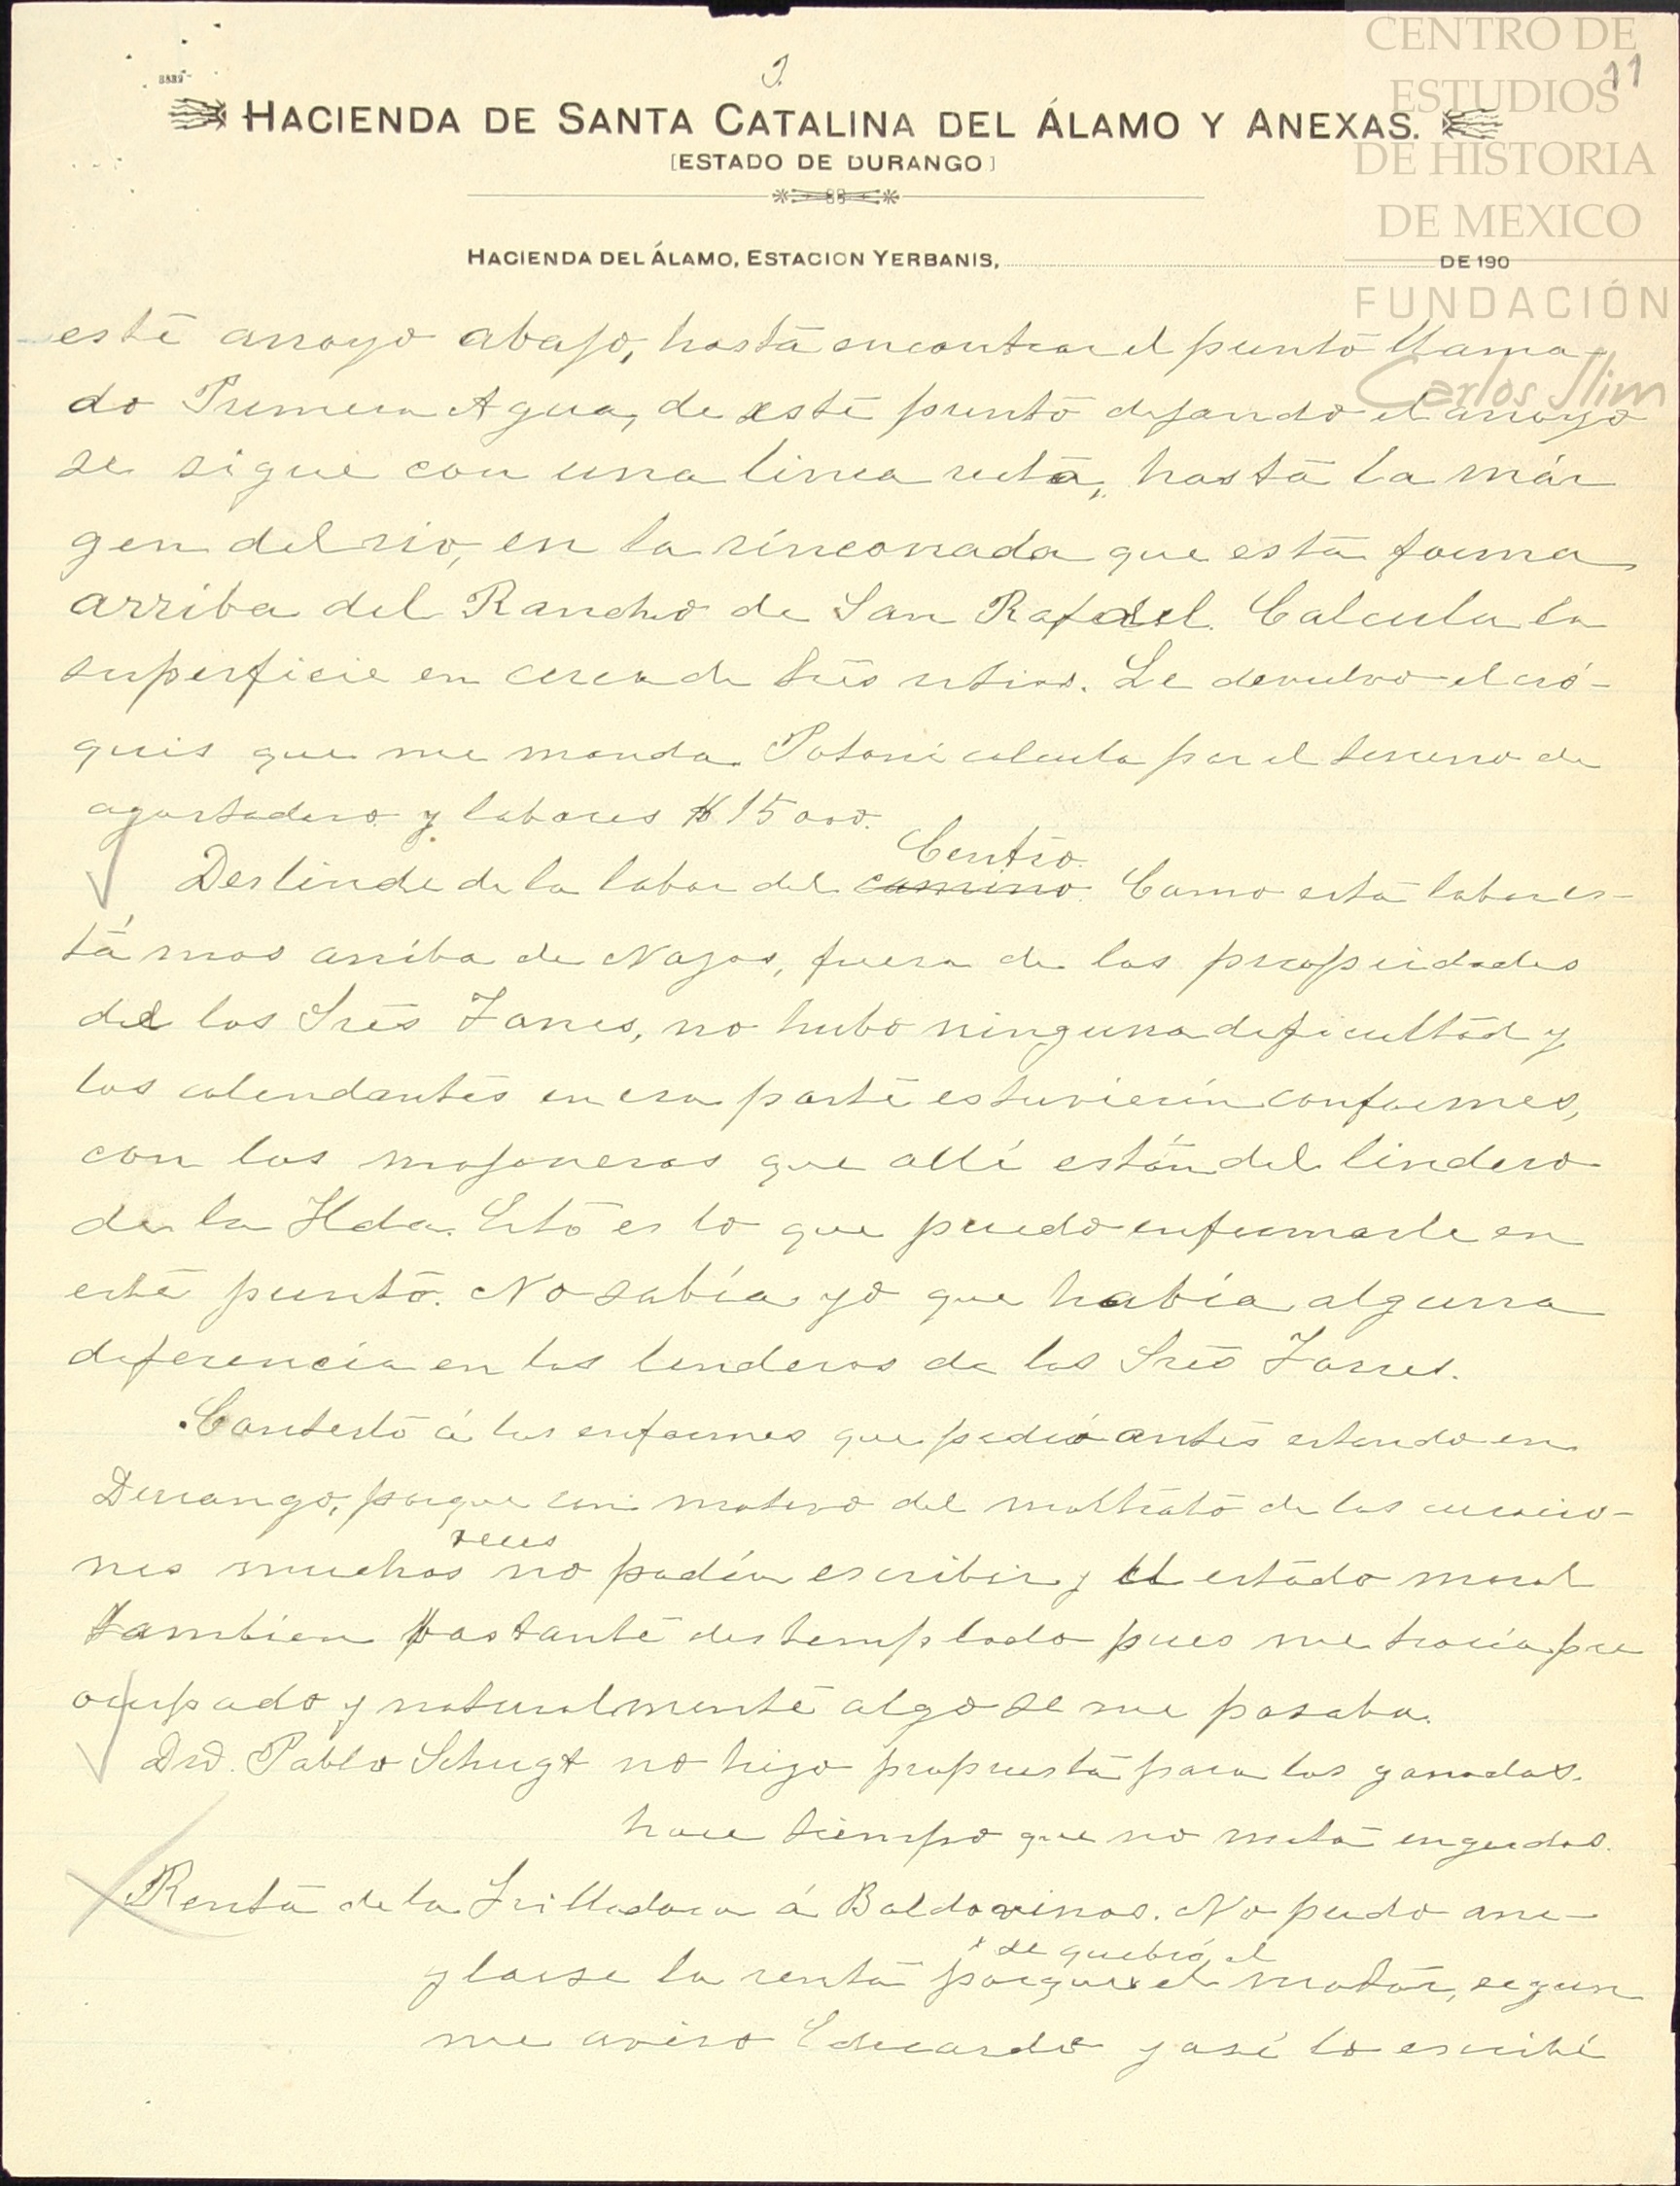 CENTRO DE
ESTUDIOS
DE HISTORIA
DE MEXICO
FUNDACIÓN
Carlos Slim
11
3.
HACIENDA DE SANTA CATALINA DEL ÁLAMO Y ANEXAS.
[ESTADO DE DURANGO]
HACIENDA DEL ÁLAMO, ESTACION YERBANIS, DE 190
este arroyo abajo, hasta encontrar el punto llama-
do Primera Agua, de este punto dejando el arroyo
se sigue con una linea recta, hasta la már
gen del rio, en la rinconada que esta forma
arriba del Rancho de San Rafael. Calcula la
superficie en cerca de tres sitios. Le devuelvo el cró-
quis que me manda. Potoni calcula por el terreno de
agostadero y labores $15000.
Deslinde de la labor del camino Centro. Como esta labor es-
tá mas arriba de Nazas, fuera de las propiedades
de los Sres Fares, no hubo ninguna dificultad y
los colindantes en esa parte estuvierón conformes,
con las mojoneras que allí están del lindero
de la Hda. Esto es lo que puedo enformarle en
este punto. No sabía yo que había alguna
diferencia en los linderos de los Sres Farres.
Contesto á los enformes que pedió antes estando en
Durango, porque con motivo del maltrato de las curacio-
nes muchas veces no podía escribir y el estado moral
tambien bastante destemplado pues me traía pre
ocupado y naturalmente algo se me pasaba.
Dn. Pablo Schugt no hizo propuesta para los ganados.
hace tiempo que no mata engordas.
Renta de la Trilladora á Baldovinos. No pudo arre-
glarse la renta porque se quebró el motor, segun
me aviso Eduardo y así lo escribí